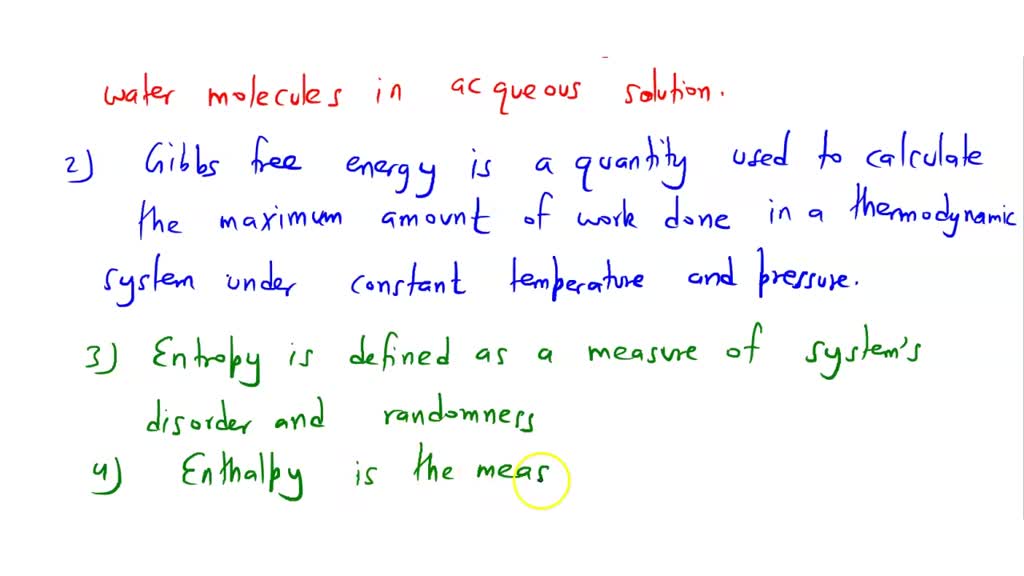 water molecules in acqueous solution.
2) Gibbs free energy is a quantity used to calculate
the maximum amount of work done in a thermodynamic
system under constant temperature and pressure.
3) Entropy is defined as a measure of system's
disorder and randomness
4) Enthalpy is the meas